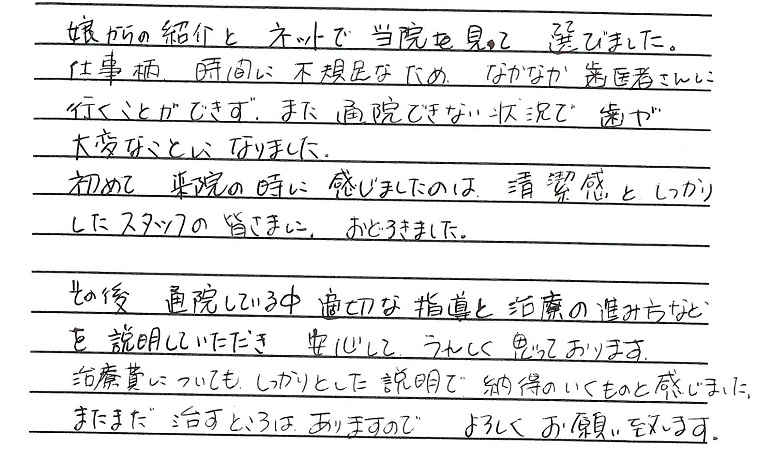 娘からの紹介と ネットで 当院を見って 選びました。
仕事柄 時間に不規足なため なかなか歯医者さんに
行くことができず、また通院できない状況で 歯が
大変なことに なりました。
初めて 来院の時に 感じましたのは、清潔感と しっかり
したスタッフの 皆さまに、おどろきました。
その後 通院している中 適切な指導と 治療の進み方など
を説明していただき 安心して うれしく思っております。
治療費についても しっかりとした説明で 納得のいくものと感じました。
まだまだ 治すところは ありますので よろしくお願い致します。